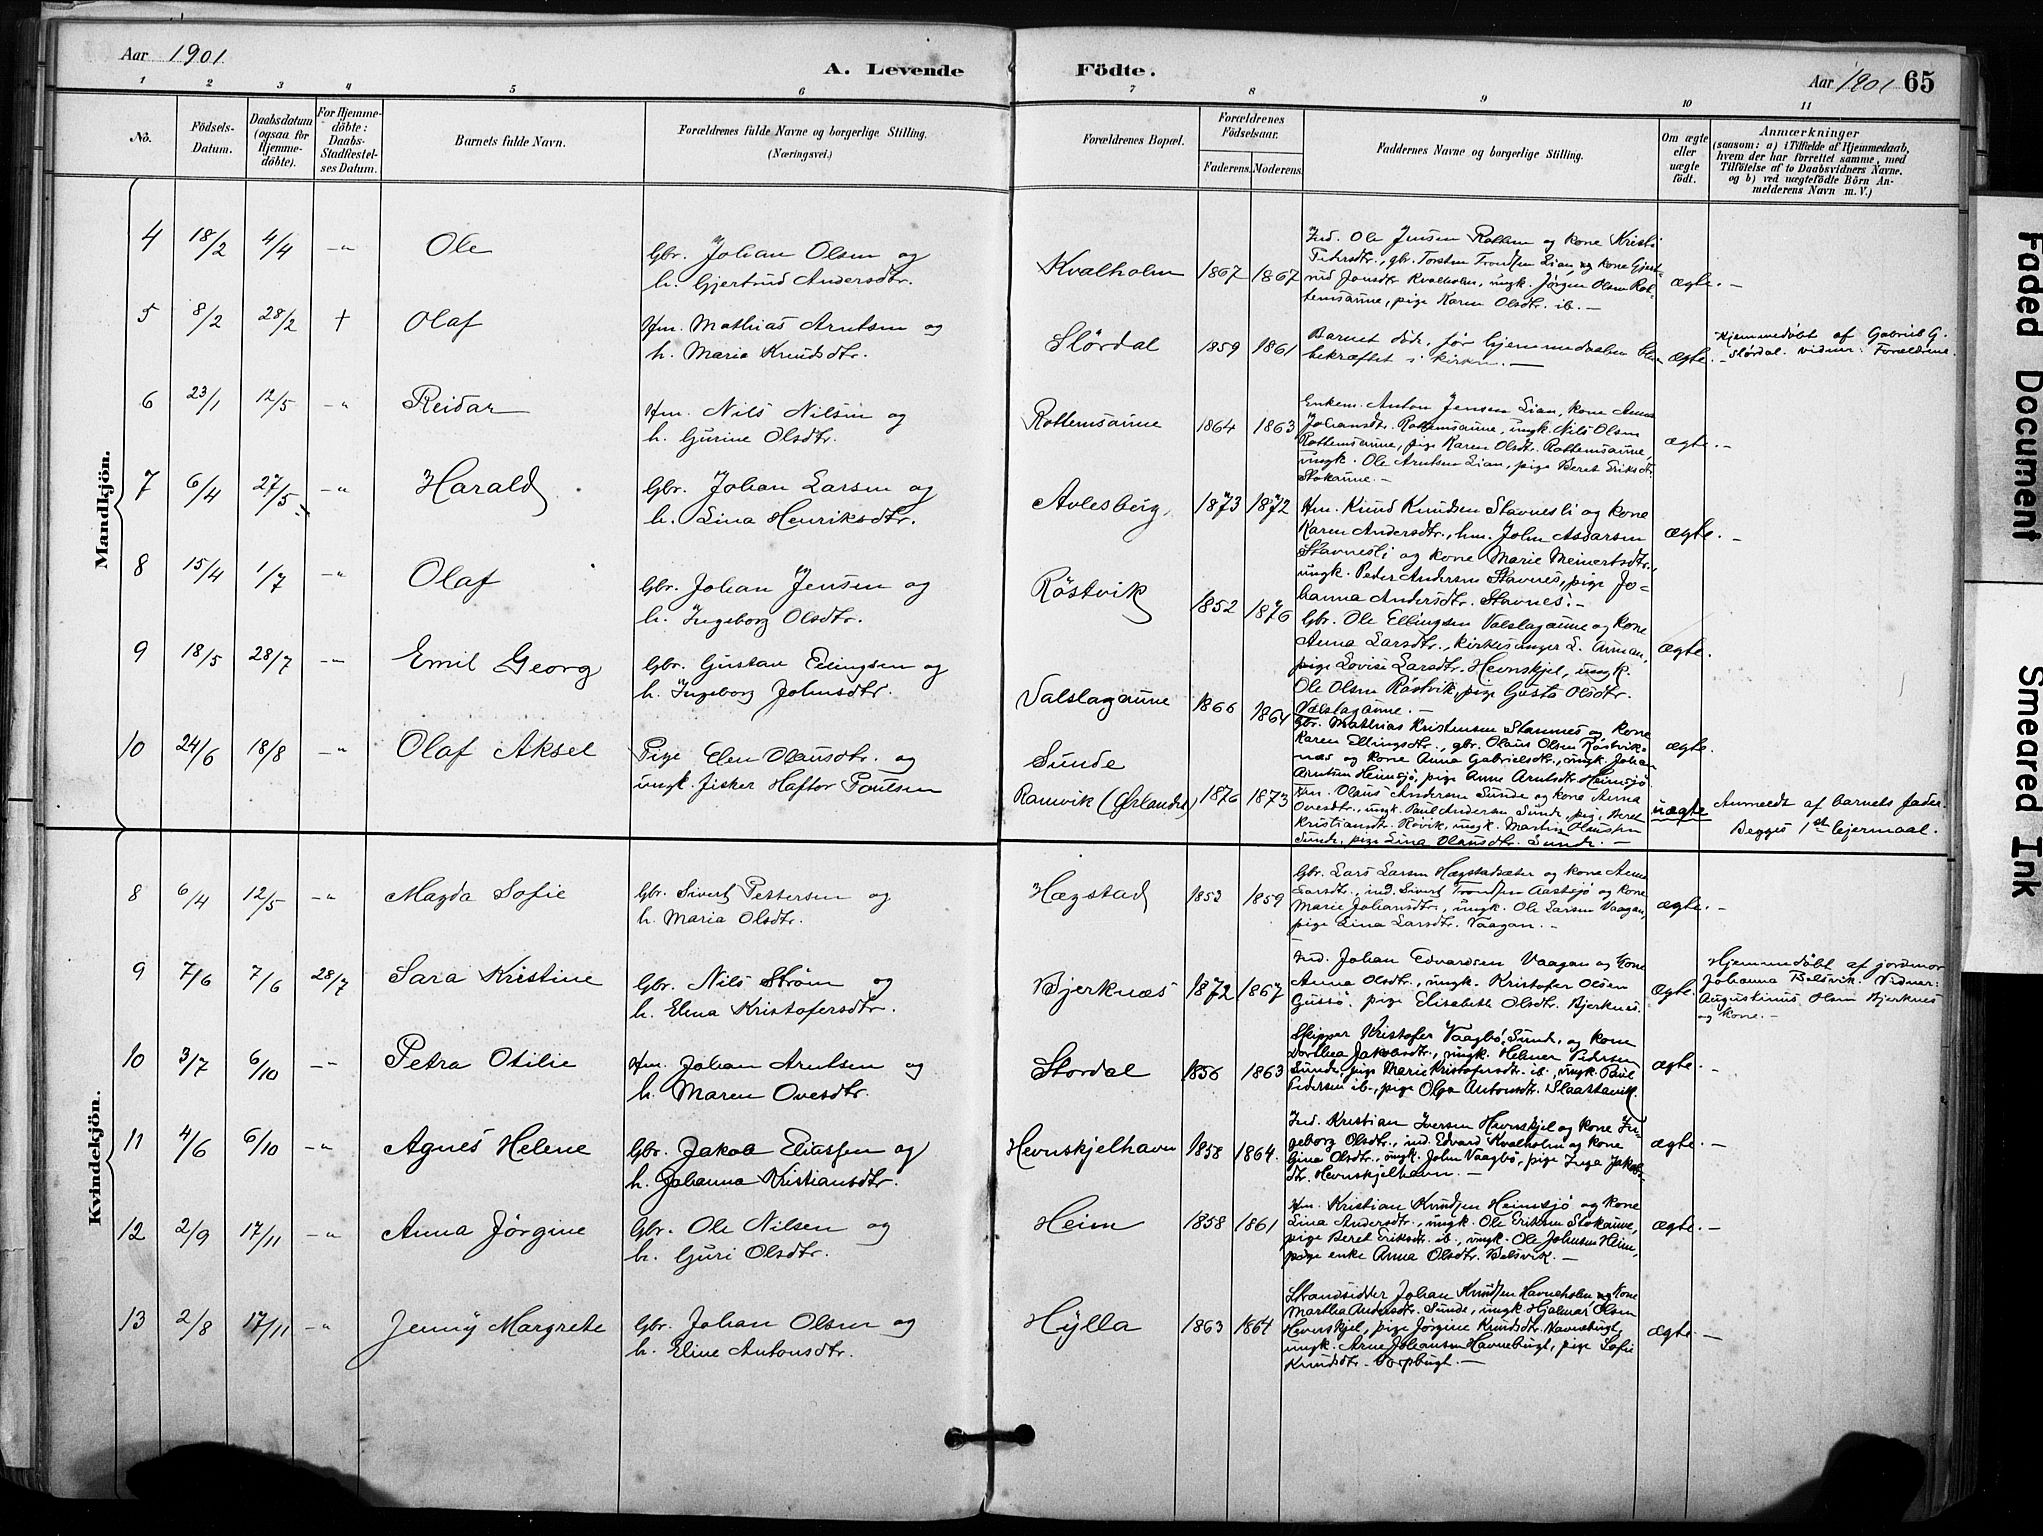 Aar 1901
A. Levende Födte.
Aar 1901 65
1 2 3 4 5 6 7 8 9 10 11
No.
Födsels-Datum.
Daabsdatum (ogsaa for Hjemme-döbte).
For Hjemme-döbte: Daabs-Stadfæstel-ses Datum.
Barnets fulde Navn.
Forældrenes fulde Navne og borgerlige Stilling. (Næringsvei.)
Forældrenes Bopæl.
Forældrenes Födselsaar.
Faderens. Moderens.
Faddernes Navne og borgerlige Stilling.
Om ægte eller uægte födt.
Anmærkninger
(saasom: a) i Tilfælde af Hjemmedaab,
hvem der har forrettet samme, med
Tilföielse af to Daabsvidners Navne.
og b) ved uægtefödte Börn An-
melderens Navn m. V.)
Mandkjön.
4 18/2 4/4 -"- Ole
Gbr. Johan Olsen og
h. Gjertrud Andersdtr.
Kvalholm 1867 1867
Ind. Ole Jensen Rottem og kone Kristi
Pedersdtr., gbr. Torsten Trondsen Lian og kone Gjert-
rud Jonsdtr. Kvalholm, ungk. Jörgen Olsen Rot-
temsaune, pige Karen Olsdtr. ib. —
ægte. —
5 8/2 28/2 † Olaf
Hm. Mathias Arntsen og
h. Maria Knudsdtr.
Slördal 1859 1861
Barnet döde, för hjemmedaaben blev
bekræftet i kirken. —
ægte. —
Hjemmedöbt af Gabriel G.
Slördal. vidner: Forældrene.
6 23/1 12/5 -"- Reidar
Hm. Nils Nilsen og
h. Gurine Olsdtr.
Rottemsaune 1864 1863
Enkem. Anton Jensen Lian, kone Anna
Johansdtr. Rottemsaune, ungk. Nils Olsen
Rottemsaune, pige Karen Olsdtr. Rottemsaune,
ungk. Ole Arntsen Lian, pige Beret Eriksdtr.
Stokaune. —
ægte. —
7 6/4 27/5 -"- Harald
Gbr. Johan Larsen og
h. Lina Henriksdtr.
Avlesbug, 1873 1872
Hm. Knud Knudsen Stavnesli og kone
Karen Andersdtr., hm. John Asdarsen
Stavnesli og kone Marie Meinertsdtr.,
ungk. Peder Andersen Stavnes, pige Jo-
hanna Andersdtr. Stavnes. —
ægte. —
8 15/4 1/7 -"- Olaf
Gbr. Johan Jensen og
h. Ingeborg Olsdtr.
Röstvik 1852 1876
Gbr. Ole Ellingsen Valslagaune og kone
Anna Larsdtr., kirkesanger L.
pige Lovise Larsdtr. Hevnskjel, ungk.
Ole Olsen Röstvik, pige Gusta Olsdtr.
Valslagaune. —
ægte.
9 18/5 28/7 -"- Emil Georg
Gbr. Gustav Edingsen og
h. Ingeborg Johnsdtr.
Valslagaune 1866 1864
Gbr. Mathias Kristensen Stamnes og kone
Karen Ellingsdtr., gbr. Olaus Olsen Röstvik-
næs og kone Anna Gabrielsdtr., ungk. Johan
Arntsen Heimsjö, pige Anne Arntsdtr. Heimsjö.
ægte.
10 24/6 18/8 -"- Olaf Aksel
Pige Elen Olausdtr. og
ungk. fisker Haftor Paulsen
Sunde
Ramvik (Örlandet) 1876 1873
Hm. Olaus Andersen Sunde og kone Anna
Ovesdtr., ungk. Paul Andersen Sunde, pige Beret
Kristiansdtr. Rövik, ungk. Martin Olaussen
Sunde, pige Lina Olausdtr. Sunde. —
uægte
Anmeldt af barnets fader.
Begges 1st leiermaal.
Kvindekjön.
8 6/4 12/5 -"- Magda Sofie
Gbr. Sivert Pettersen og
h. Maria Olsdtr.
Hægstad 1853 1859
Gbr. Lars Larsen Hægstadsæter og kone Anna
Larsdtr., ind. Sivert Trondsen Aastsjö og kone
Marie Johansdtr., ungk. Ole Larsen Vaagan,
pige Lina Larsdtr. Vaagan. —
ægte. —
9 7/6 7/6 28/7 Sara Kristine
Gbr. Nils Ström og
h. Elena Kristofersdtr.
Bjerknæs 1872 1867
Ind. Johan Edvardsen Vaagan og kone
Anna Olsdtr., ungk. Kristofer Olsen
Gussö, pige Elisabeth Olsdtr. Bjerknes.
Ægte.
Hjemmedöbt af jordmor
Johanna Belsvik. Vidner:
Augustinus Olsen Bjerknes
og kone. —
10 3/7 6/10 -"- Petra Otilie
Hm. Johan Arntsen og
h. Maren Ovesdtr.
Stordal 1856 1863
Skipper Kristofer Vaagbö, Sunde, og kone
Dorthea Jakobsdtr., ungk. Helmer Pedersen
Sunde, pige Marie Kristofersdtr. ib., ungk. Paul
Pedersen ib., pige Olga Antonsdtr. Slaastavik
ægte. —
11 4/6 6/10 -"- Agnes Helene
Gbr. Jakob Eliassen og
h. Johanna Kristiansdtr.
Hevnskjelhavn 1858 1864.
Ind. Kristian Iversen Hevnskjel og kone In-
geborg Olsdtr., ind. Edvard Kvalholm og kone
Gina Olsdtr., ungk. John Vaagbö, pige Inga Jakobs-
dtr. Hevnskjelhavn. —
ægte. —
12 2/9 17/11 -"- Anna Jörgine
Gbr. Ole Nilsen og
h. Guri Olsdtr.
Heim 1858 1861
Hm. Kristian Knudsen Heimsjö og kone
Lina Andersdtr., ungk. Ole Eriksen Stokaune,
pige Beret Eriksdtr. ib., ungk. Ole Johnsen Heim,
pige enke Anna Olsdtr. Belsvik. —
ægte. —
13 2/8 17/11 -"- Jenny Margrete
Gbr. Johan Olsen og
h. Eline Antonsdtr.
Hylla 1863 1864
Strandsidder Johan Knudsen Havneholm, og kone
Martha Andersdtr. Sunde, ungk. Hjalmar Olsen
Hevnskjel, pige Jörgine Knudsdtr. Havnebugt,
ungk. Arne Johansen Havnebugt, pige Sofie
Knudsdtr. —
ægte. —
Faded Document
Smeared Ink